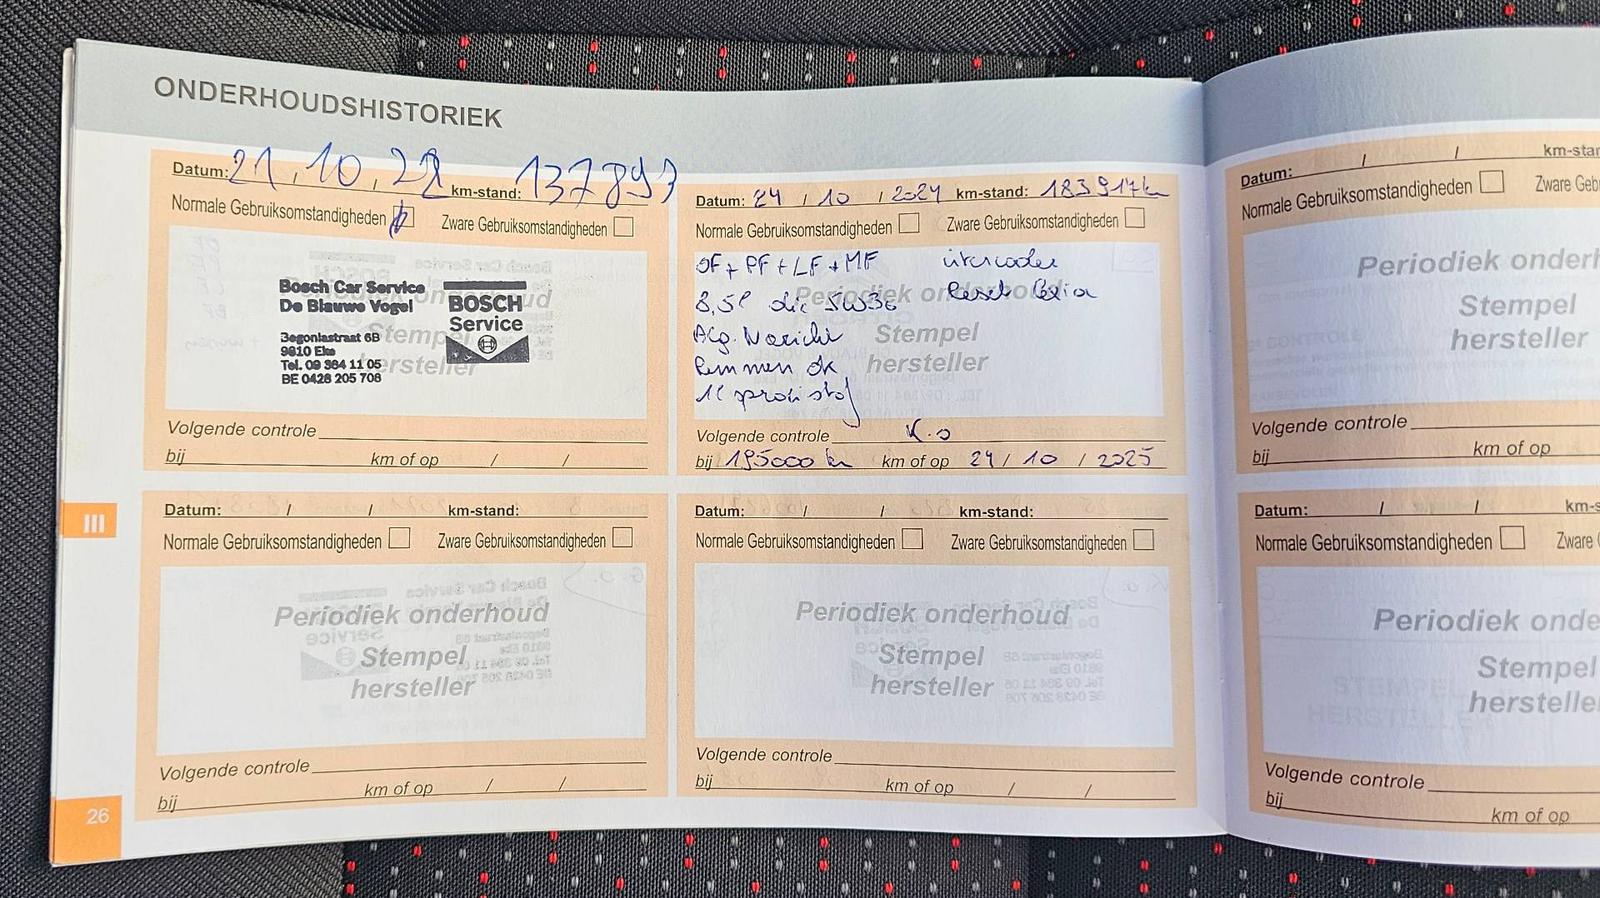 ONDERHOUDSHISTORIEK
Datum: 21 / 10 / 22 km-stand: 137897
Normale Gebruiksomstandigheden Zware Gebruiksomstandigheden
Bosch Car Service
De Blauwe Vogel
BOSCH
Service
Begoniastraat 6B
9810 Eke
Tel. 09 384 11 05
BE 0428 205 708
Stempel
hersteller
Volgende controle
bij km of op / /
Datum: 24 / 10 / 2024 km-stand: 183917km
Normale Gebruiksomstandigheden Zware Gebruiksomstandigheden
OF + PF + LF + MF
8,5l olie 5W30
Periodiek onderhoud
Stempel
hersteller
Remmen ok
Volgende controle K.O
bij 195000 km km of op 24 / 10 / 2025
Datum: / / km-stand:
Normale Gebruiksomstandigheden Zware Gebruiksomstandigheden
Periodiek onderhoud
Stempel
hersteller
Volgende controle
bij km of op / /
Datum: / / km-stand:
Normale Gebruiksomstandigheden Zware Gebruiksomstandigheden
Periodiek onderhoud
Stempel
hersteller
Volgende controle
bij km of op / /
III
26
Datum: / / km-stan
Normale Gebruiksomstandigheden Zware Geb
Periodiek onderh
Stempel
hersteller
Volgende controle
bij km of op
Datum: / / km-s
Normale Gebruiksomstandigheden Zware
Periodiek onde
Stempel
hersteller
Volgende controle
bij km of op